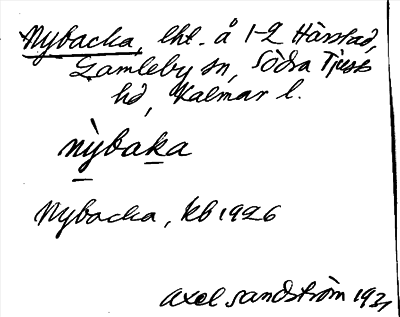 Nybacka, lht. å 1-2 Hårstad,
Gamleby sn, Södra Tjust
hd, Kalmar l.
nỳbaka
Nybacka, kb 1926
Axel Sandström 1931